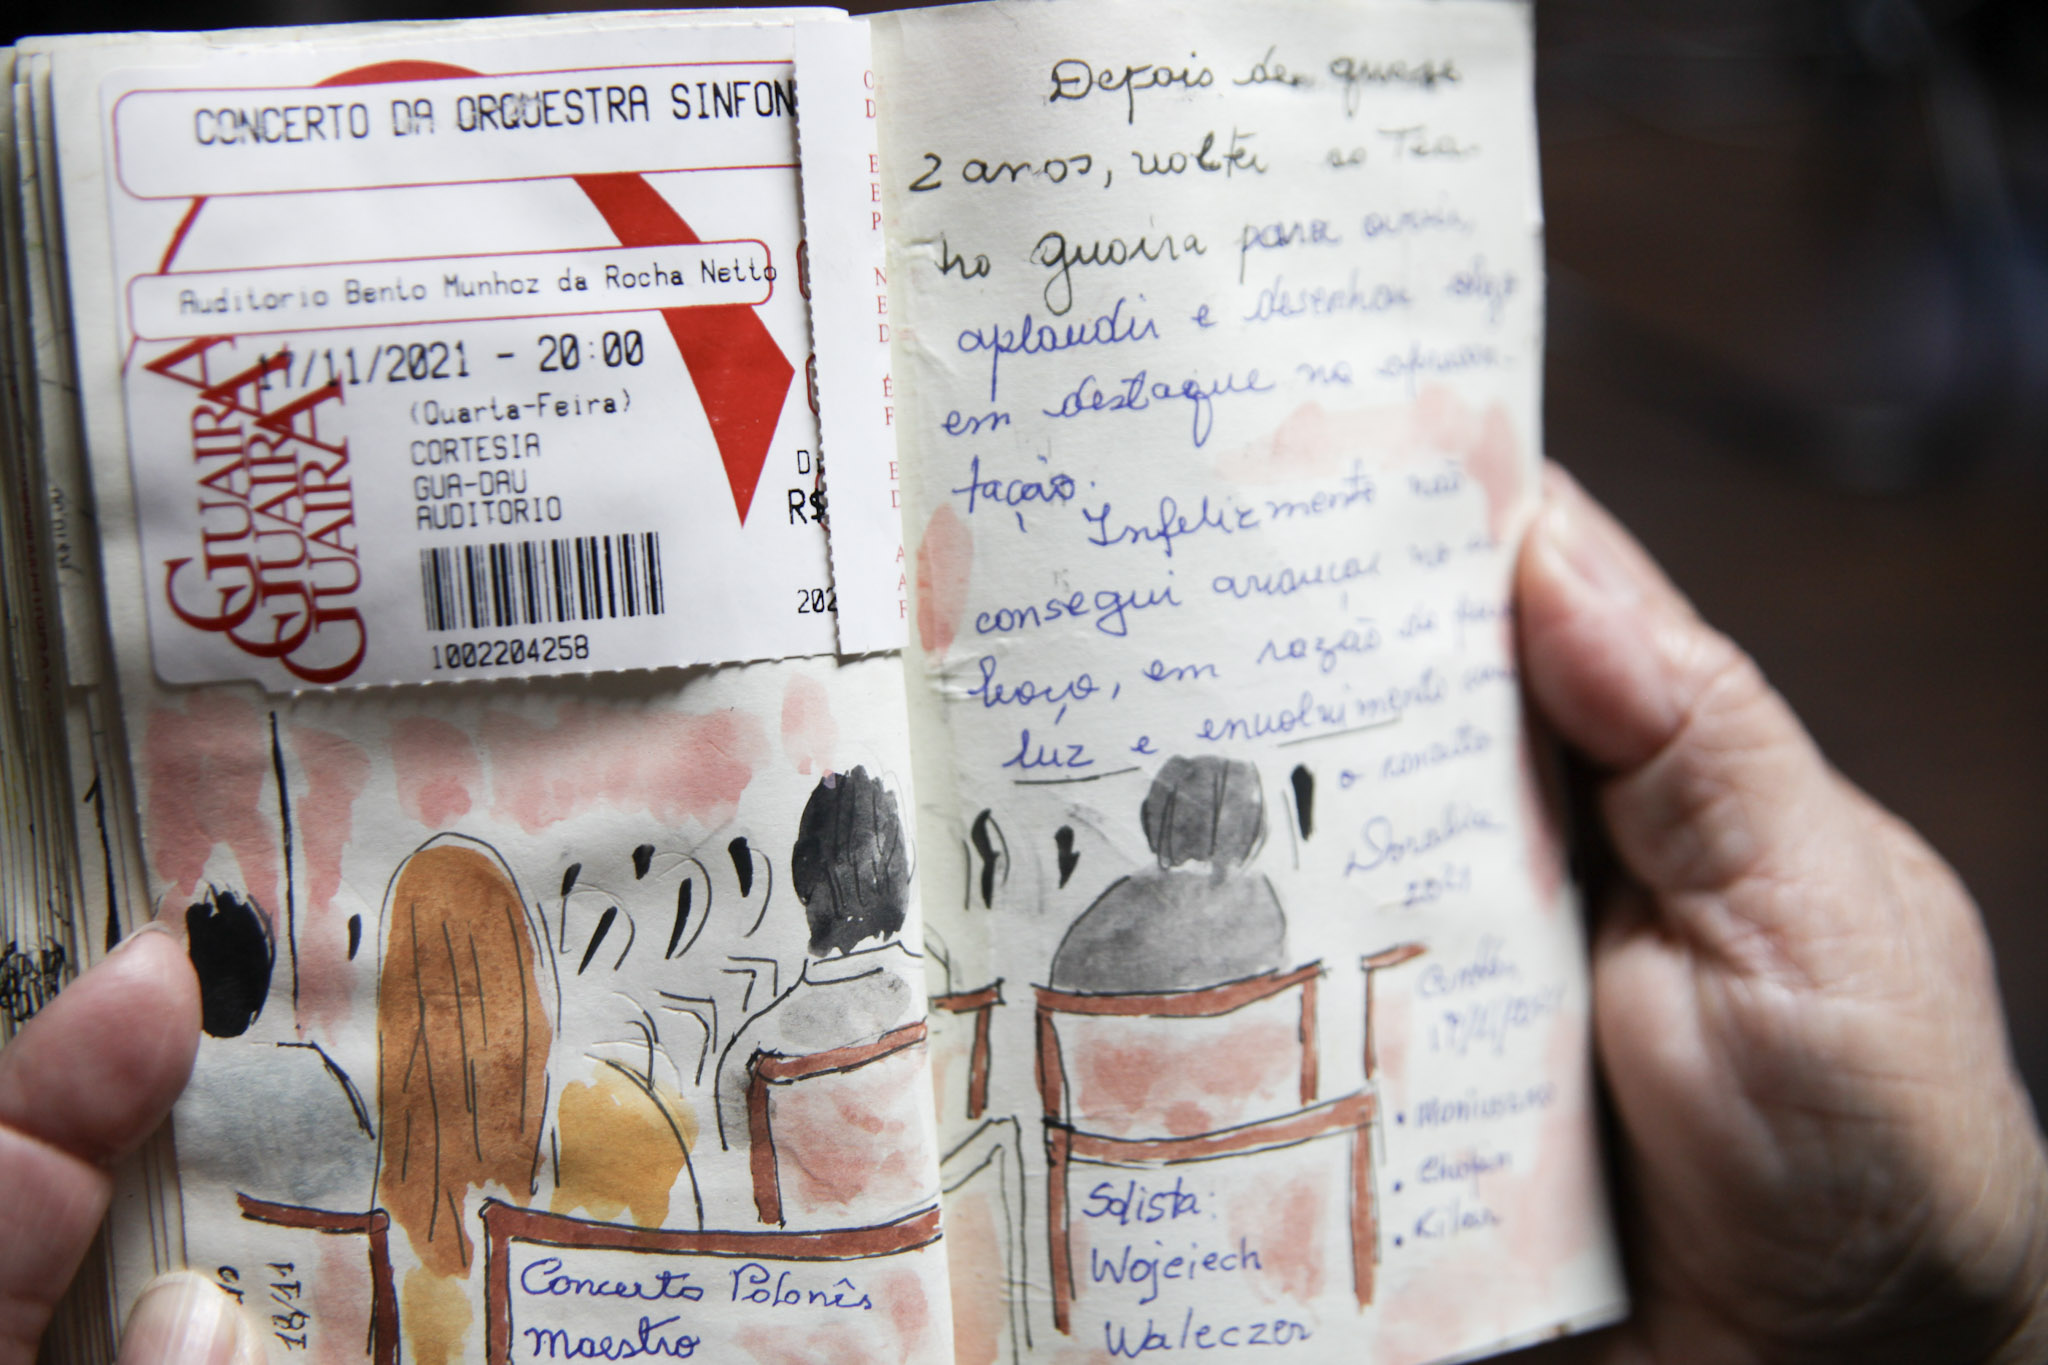 CONCERTO DA ORQUESTRA SINFON
Auditorio Bento Munhoz da Rocha Netto
17/11/2021 - 20:00
(Quarta-Feira)
CORTESIA
GUA-DAU
AUDITORIO
1002204258
GUAIRA
GUAIRA
GUAIRA
R$
202
Depois de quase
2 anos, voltei ao Tea-
tro Guaira para ouvir,
aplaudir e desenhar
em destaque na apresen-
tação.
Infelizmente não
consegui avançar no
em razão de
luz e envolvimento
o concerto
2021
Solista:
Wojciech
Waleczer
17/11/2021
• Moniuszko
• Chopin
• Kilar
Concerto Polonês
Maestro